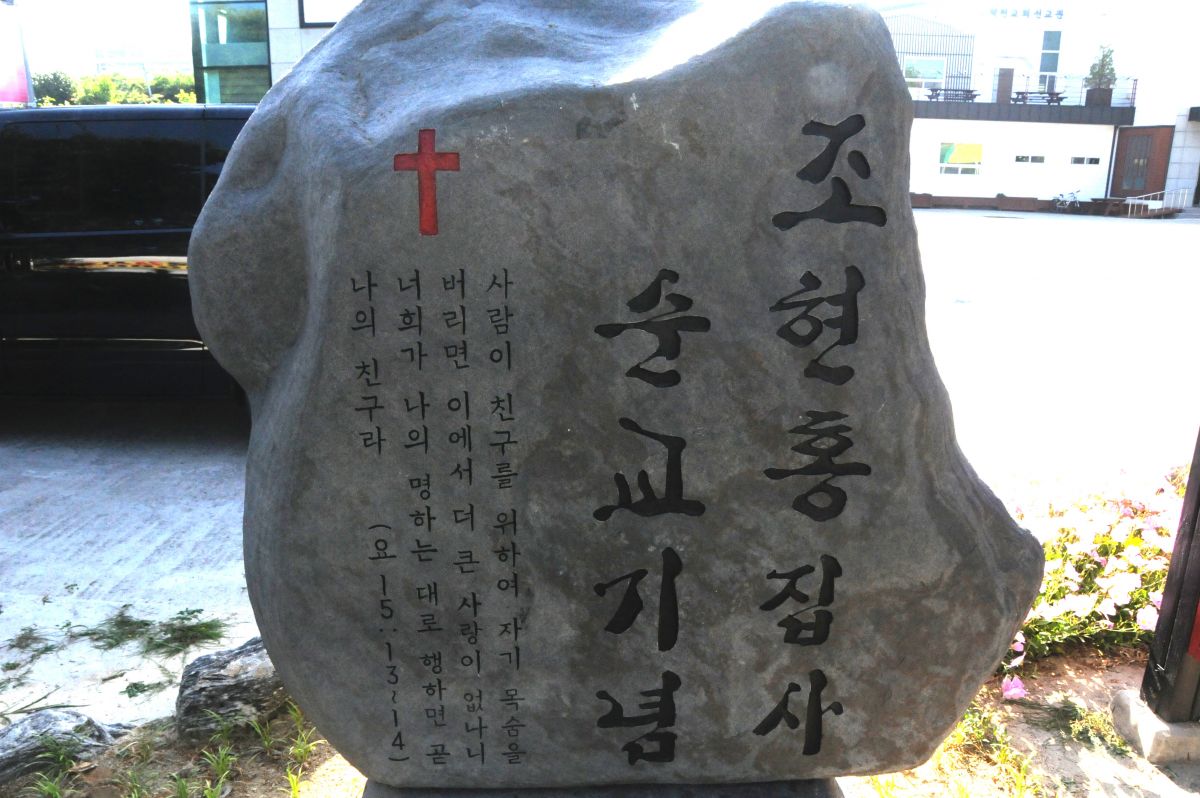 조현홍집사
순교기념
사람이 친구를 위하여 자기 목숨을
버리면 이에서 더 큰 사랑이 없나니
너희가 나의 명하는 대로 행하면 곧
나의 친구라 (요15:13~14)